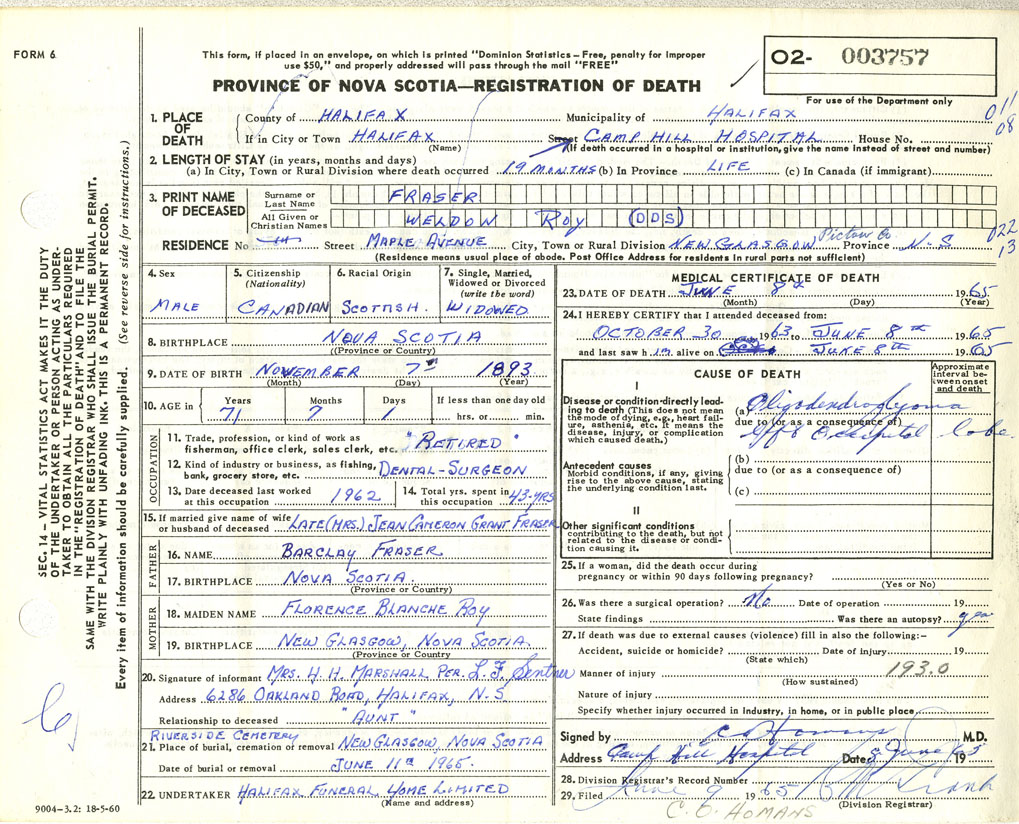 FORM 6.
This form, if placed in an envelope, on which is printed "Dominion Statistics – Free, penalty for improper
use $50," and properly addressed will pass through the mail "FREE"
PROVINCE OF NOVA SCOTIA—REGISTRATION OF DEATH
O2- 003757
For use of the Department only
011
08
1. PLACE OF DEATH
County of HALIFAX Municipality of HALIFAX
If in City or Town HALIFAX Street CAMP HILL HOSPITAL House No.
(Name) (If death occurred in a hospital or institution, give the name instead of street and number)
2. LENGTH OF STAY (in years, months and days)
(a) In City, Town or Rural Division where death occurred 19 MONTHS (b) In Province LIFE (c) In Canada (if immigrant)
3. PRINT NAME OF DECEASED
Surname or Last Name FRASER
All Given or Christian Names WELDON ROY (DDS)
Pictou Co 022
13
RESIDENCE No Street MAPLE AVENUE City, Town or Rural Division NEW GLASGOW Province N-S
(Residence means usual place of abode. Post Office Address for residents in rural parts not sufficient)
4. Sex MALE
5. Citizenship (Nationality) CANADIAN
6. Racial Origin SCOTTISH.
7. Single, Married, Widowed or Divorced (write the word) WIDOWED
8. BIRTHPLACE NOVA SCOTIA
(Province or Country)
9. DATE OF BIRTH NOVEMBER 7th 1893
(Month) (Day) (Year)
10. AGE in Years 71 Months 7 Days 1 If less than one day old
hrs. or min.
OCCUPATION
11. Trade, profession, or kind of work as
fisherman, office clerk, sales clerk, etc. "RETIRED"
12. Kind of industry or business, as fishing,
bank, grocery store, etc. DENTAL-SURGEON
13. Date deceased last worked
at this occupation 1962
14. Total yrs. spent in
this occupation 43-YRS
15. If married give name of wife
or husband of deceased LATE (MRS.) JEAN CAMERON GRANT FRASER
FATHER
16. NAME BARCLAY FRASER
17. BIRTHPLACE NOVA SCOTIA.
(Province or Country)
MOTHER
18. MAIDEN NAME FLORENCE BLANCHE ROY
19. BIRTHPLACE NEW GLASGOW, NOVA SCOTIA.
(Province or Country)
20. Signature of informant MRS. H. H. MARSHALL PER. L. F. Sentner
Address 6286 OAKLAND ROAD, HALIFAX, N.S
Relationship to deceased "AUNT"
RIVERSIDE CEMETERY
21. Place of burial, cremation or removal NEW GLASGOW, NOVA SCOTIA
Date of burial or removal JUNE 11th 1965.
22. UNDERTAKER HALIFAX FUNERAL HOME LIMITED
(Name and address)
9004-3.2: 18-5-60
MEDICAL CERTIFICATE OF DEATH
23. DATE OF DEATH JUNE 8th 1965
(Month) (Day) (Year)
24. I HEREBY CERTIFY that I attended deceased from:
OCTOBER 30 1963 to JUNE 8th 1965
and last saw him alive on JUNE 8th 1965
CAUSE OF DEATH
Approximate interval between onset and death
I
Disease or condition directly leading to death (This does not mean the mode of dying, e.g., heart failure, asthenia, etc. It means the disease, injury, or complication which caused death.)
(a) Oligodendroglyoma
due to (or as a consequence of)
lobe.
Antecedent causes
Morbid conditions, if any, giving rise to the above cause, stating the underlying condition last.
(b)
due to (or as a consequence of)
(c)
II
Other significant conditions contributing to the death, but not related to the disease or condition causing it.
25. If a woman, did the death occur during
pregnancy or within 90 days following pregnancy?
(Yes or No)
26. Was there a surgical operation? No Date of operation 19
State findings Was there an autopsy? yes
27. If death was due to external causes (violence) fill in also the following:–
Accident, suicide or homicide? Date of injury 19
(State which)
Manner of injury 193.0
(How sustained)
Nature of injury
Specify whether injury occurred in Industry, in home, or in public place
Signed by C O Homans M.D.
Address Camp Hill Hospital Date 8 June 1965
28. Division Registrar's Record Number
29. Filed June 9 1965
(Division Registrar)
C. O. HOMANS
SEC. 14 — VITAL STATISTICS ACT MAKES IT THE DUTY
OF THE UNDERTAKER OR PERSON ACTING AS UNDER-
TAKER TO OBTAIN ALL THE PARTICULARS REQUIRED
IN THE "REGISTRATION OF DEATH" AND TO FILE THE
SAME WITH THE DIVISION REGISTRAR WHO SHALL ISSUE THE BURIAL PERMIT.
WRITE PLAINLY WITH UNFADING INK. THIS IS A PERMANENT RECORD.
Every item of information should be carefully supplied. (See reverse side for instructions.)